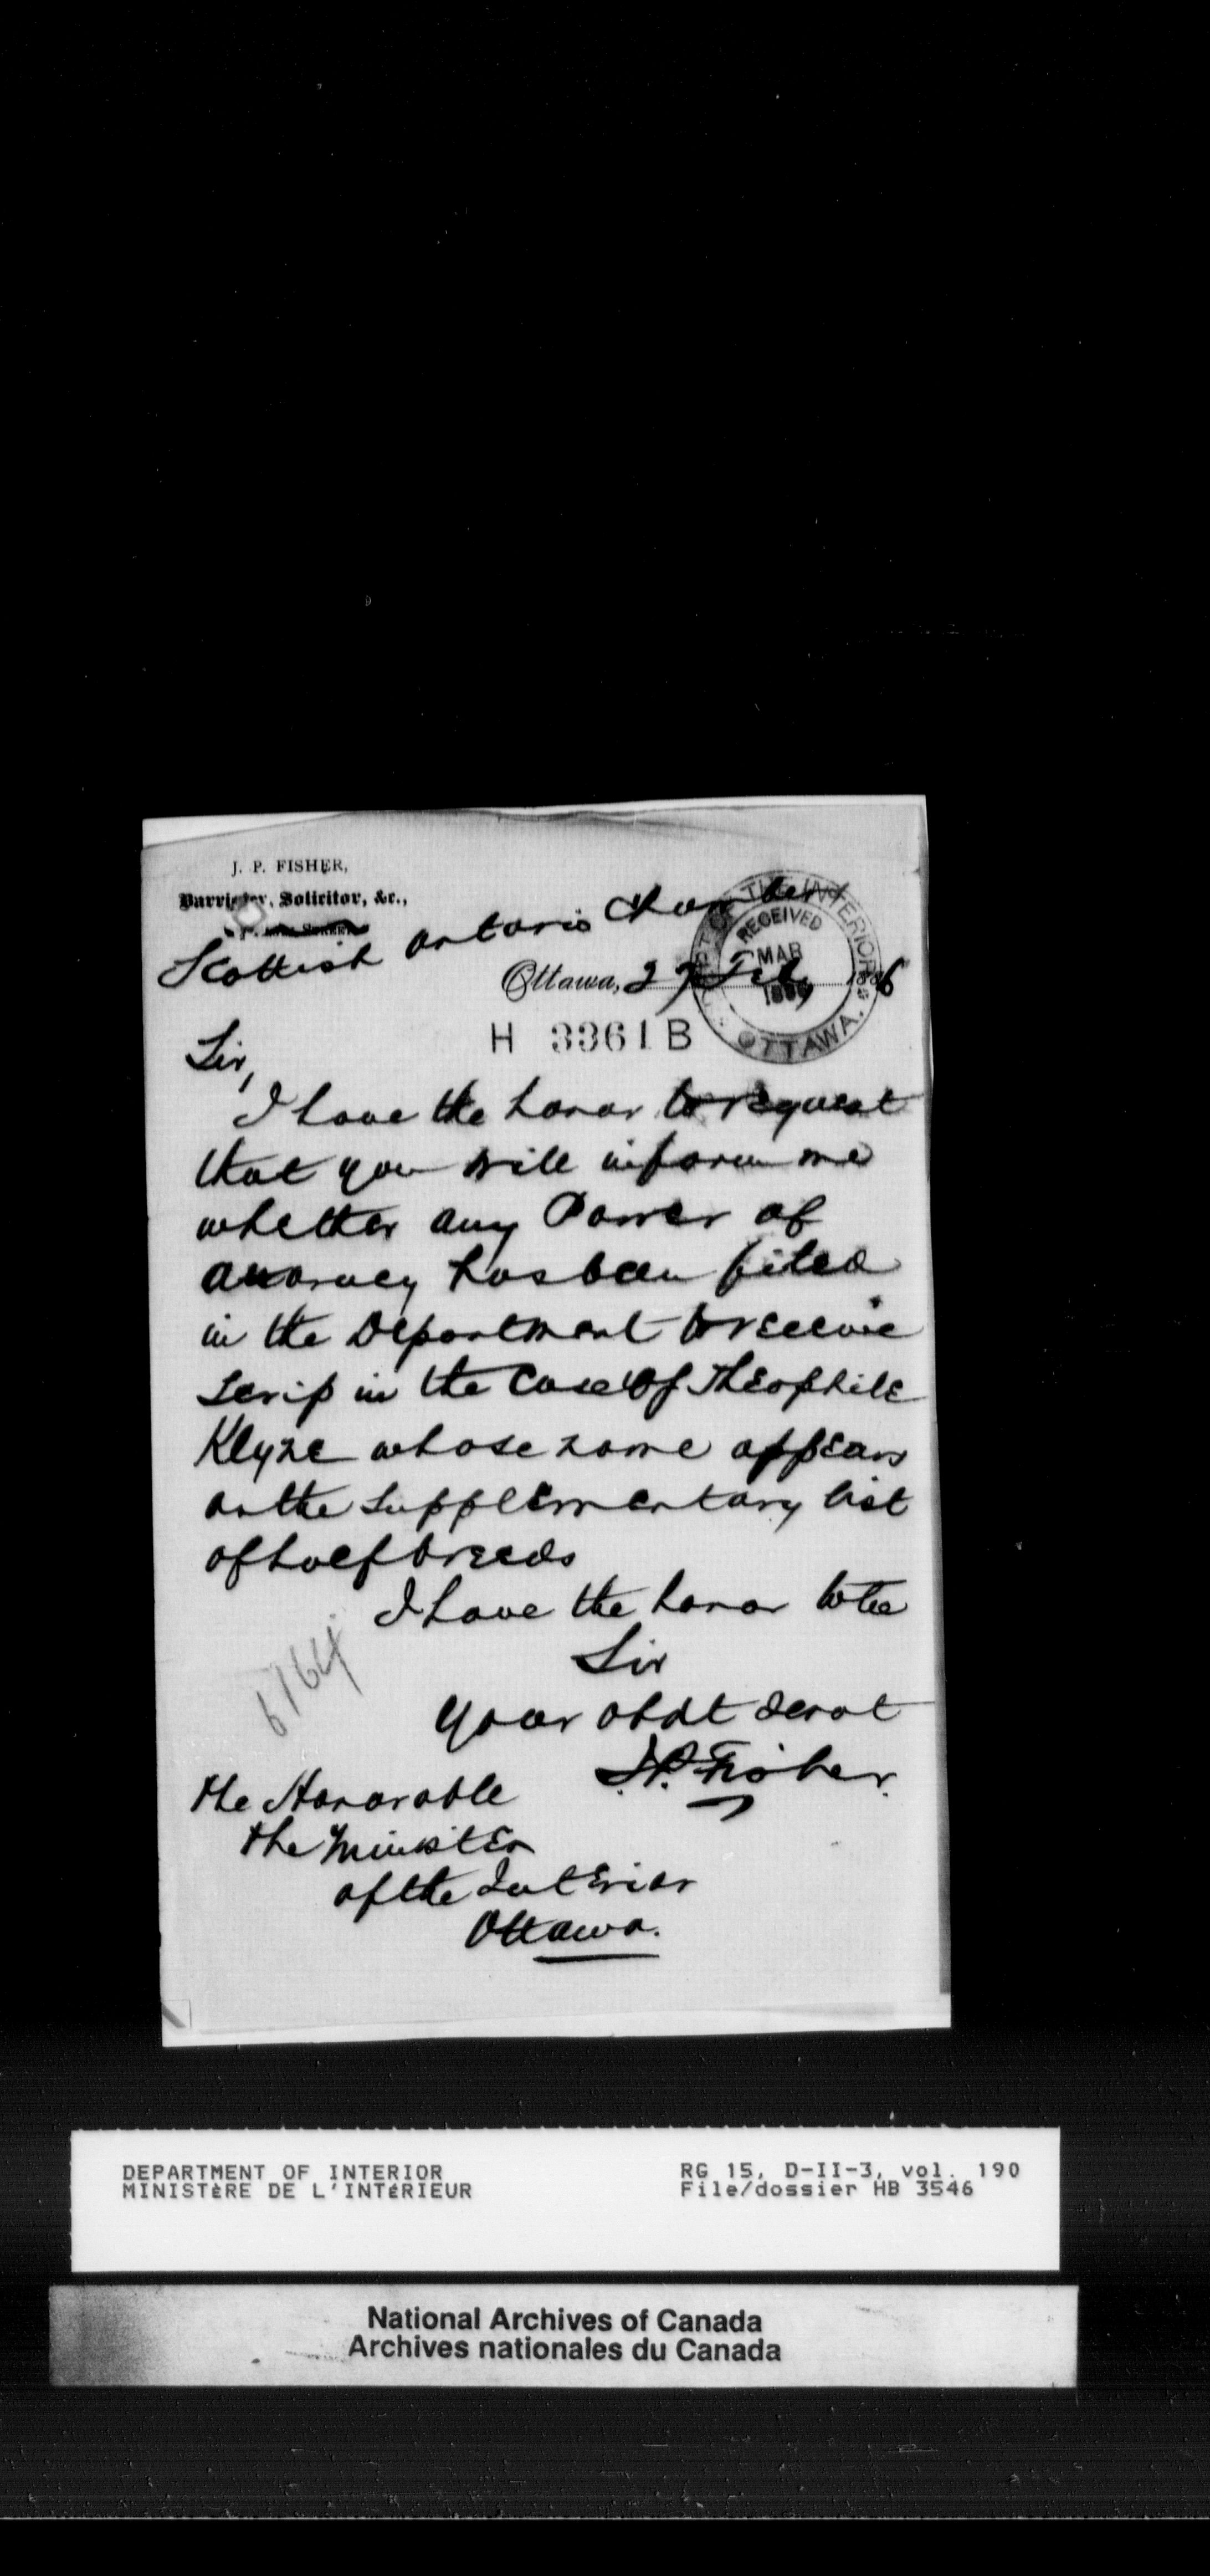 J. P. FISHER,
Barrister, Solicitor, &c.,
Scottish Ontario Chambers
Ottawa, 27 Feb 1886
DEPT OF THE INTERIOR
RECEIVED
MAR
OTTAWA.
H 3361 B
Sir,
I have the honor to request
that you will inform me
whether any Power of
Attorney has been filed
in the Department to receive
scrip in the case of Theophile
Klyne whose name appears
on the supplementary list
of half breeds
I have the honor to be
Sir
your obdt servt
J.P. Fisher.
6164
The Honorable
The Minister
of the Interior
Ottawa.
DEPARTMENT OF INTERIOR
MINISTÈRE DE L'INTÉRIEUR
RG 15, D-II-3, vol. 190
File/dossier HB 3546
National Archives of Canada
Archives nationales du Canada